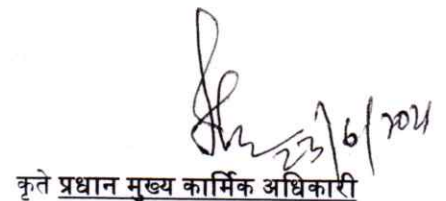 23/6/2021
कृते प्रधान मुख्य कार्मिक अधिकारी